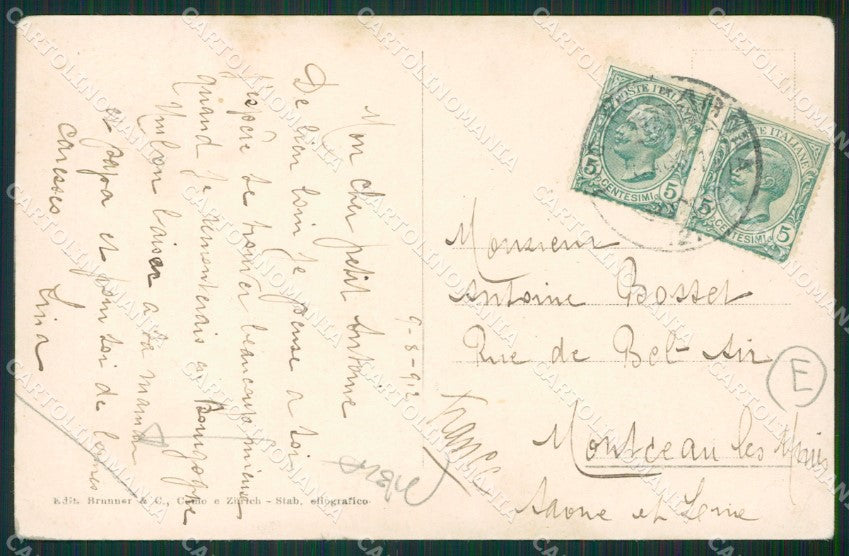 Mon cher petit Antoine
De bien loin je pense a toi
J'espère te trouver beaucoup
quand je remonterais en Bourgogne
Un bon baiser a ta maman
et papa et pour toi de
caresses
Lina
9-8-912
POSTE ITALIANE
5 CENTESIMI 5
POSTE ITALIANE
5 CENTESIMI 5
Monsieur
Antoine Bosset
Rue de Bel-Air
E
Montceau les Mines
Saone et Loire
France
Edit. Brunner & C., Como e Zürich - Stab. eliografico
CARTOLINOMANIA